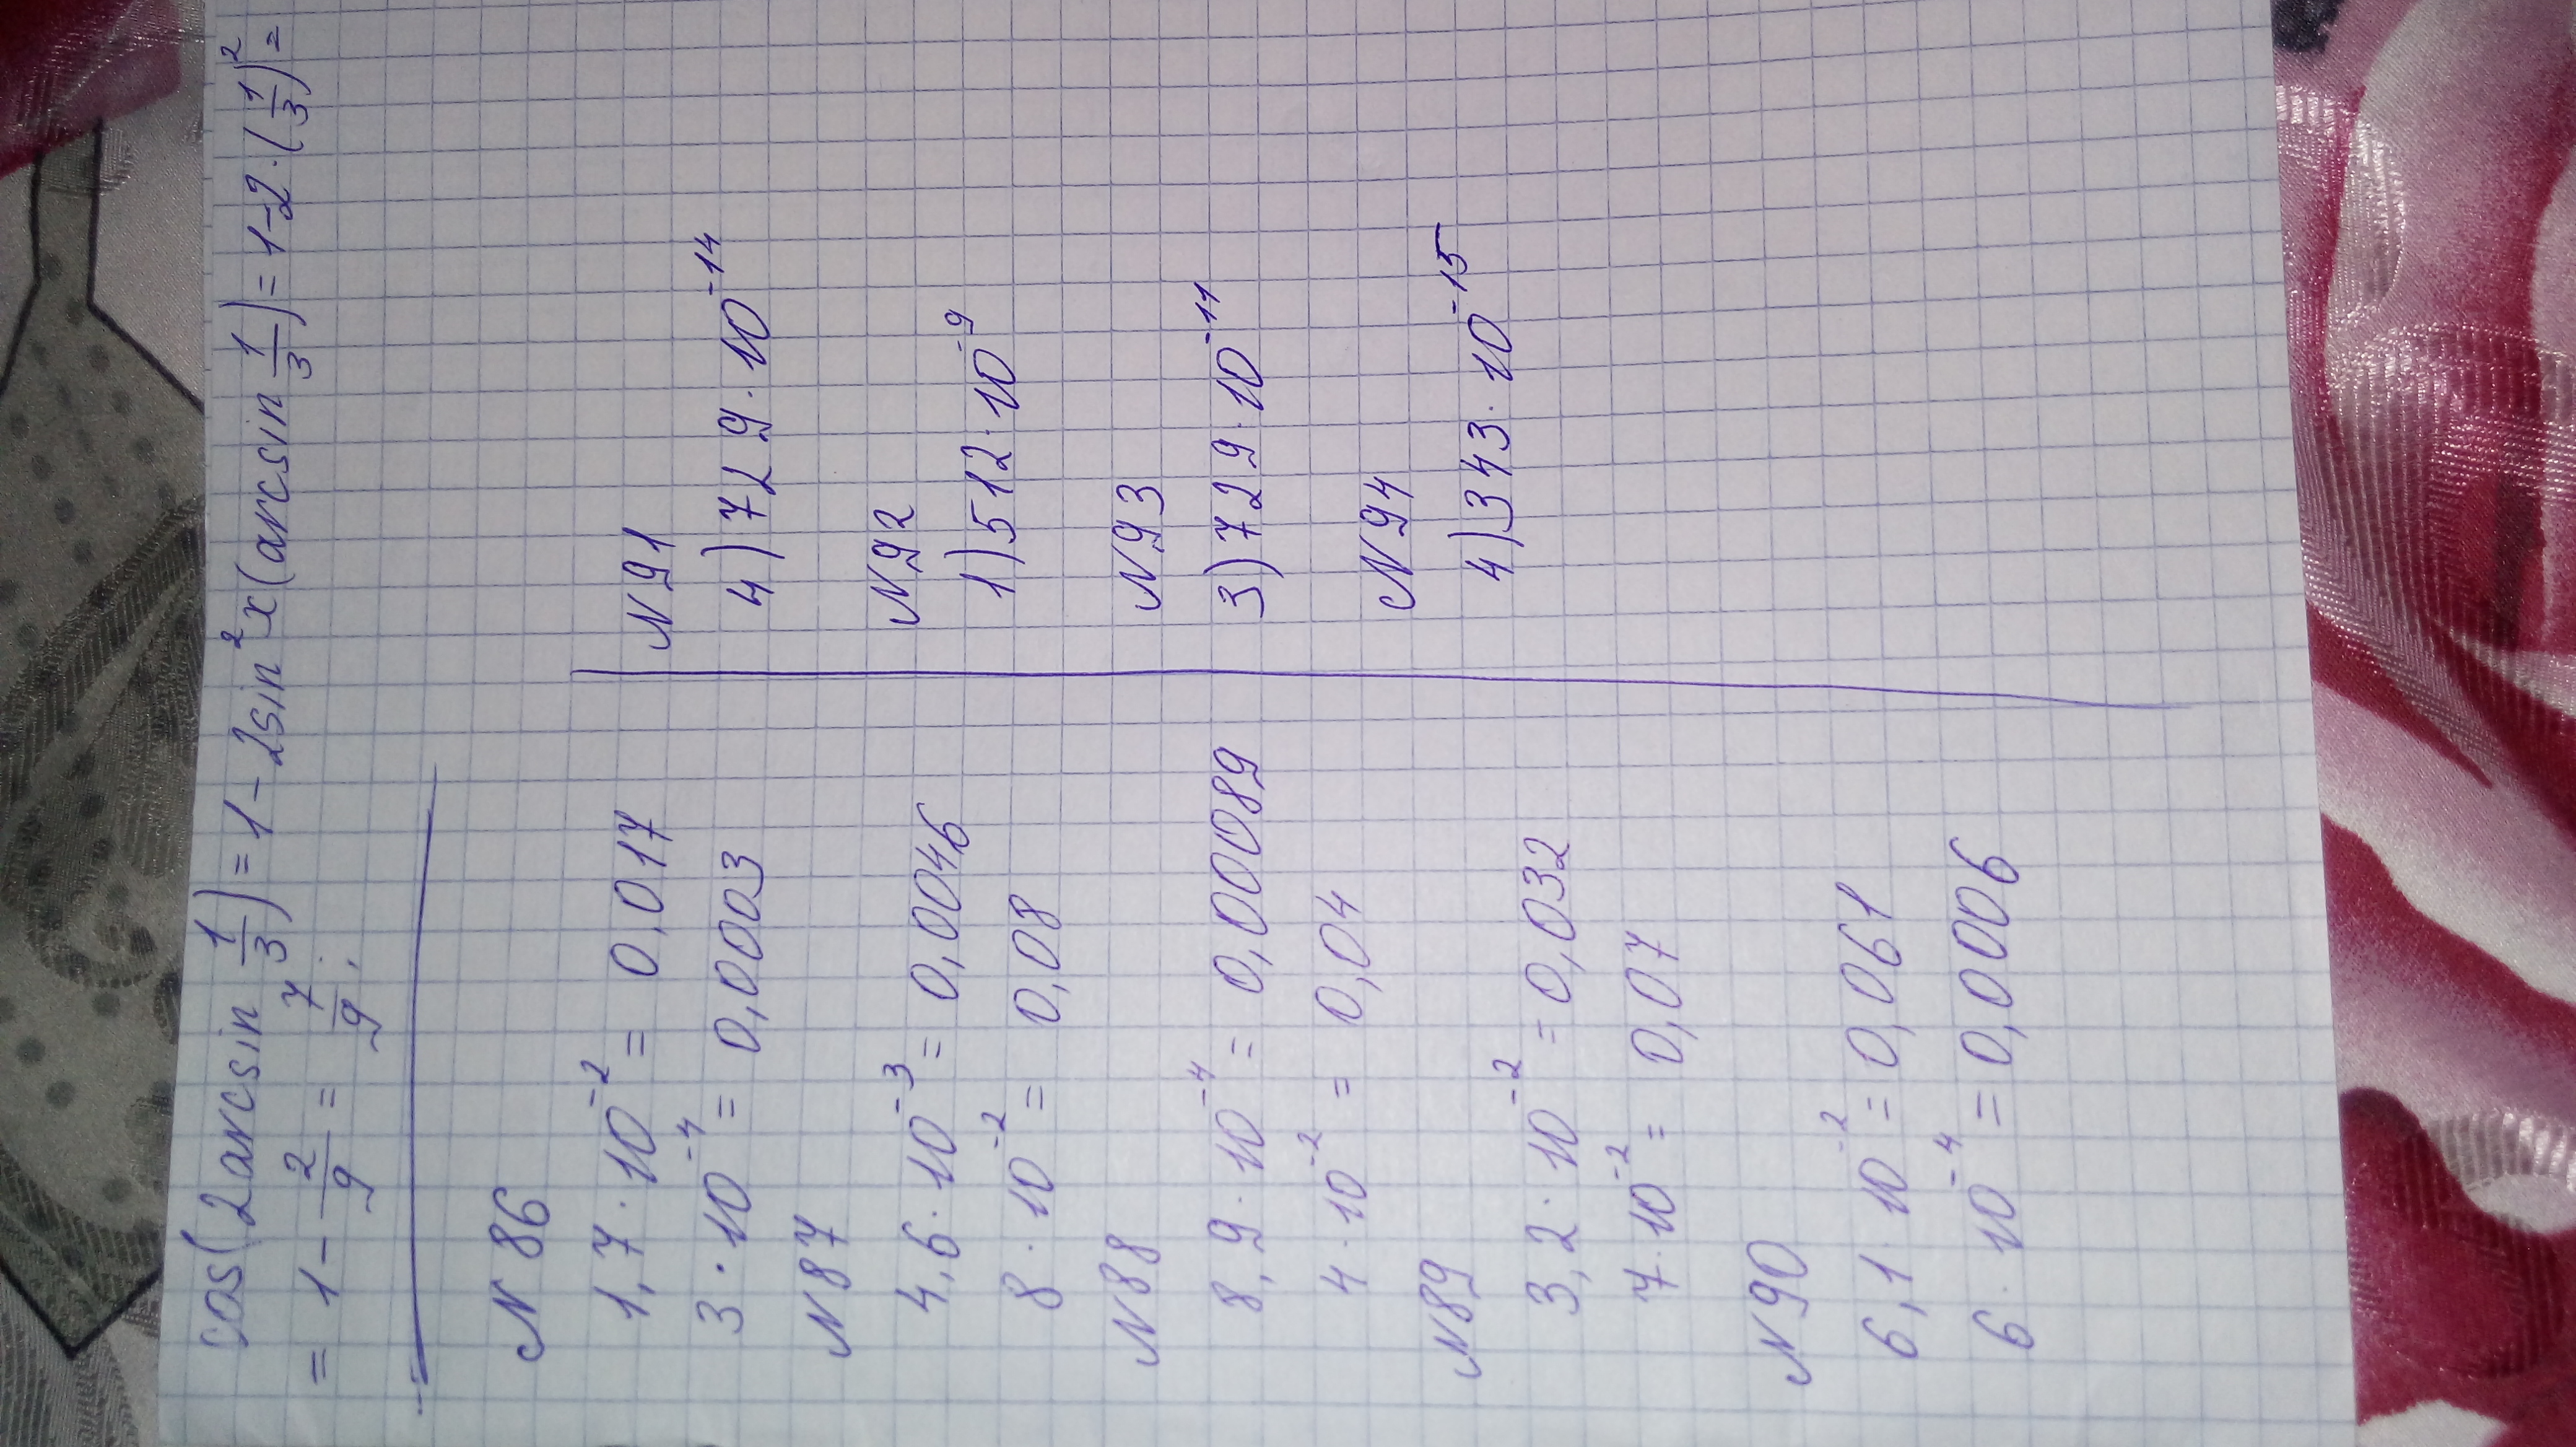 cos(2arcsin 1/3) = 1 - 2sin²x(arcsin 1/3) = 1-2·(1/3)² =
= 1 - 2/9 = 7/9.
N 86
1,7 · 10⁻² = 0,017
3 · 10⁻⁴ = 0,0003
N 87
4,6 · 10⁻³ = 0,0046
8 · 10⁻² = 0,08
N 88
8,9 · 10⁻⁴ = 0,00089
4 · 10⁻² = 0,04
N 89
3,2 · 10⁻² = 0,032
7 · 10⁻² = 0,07
N 90
6,1 · 10⁻² = 0,061
6 · 10⁻⁴ = 0,0006
N 91
4) 729 · 10⁻¹⁴
N 92
1) 512 · 10⁻⁹
N 93
3) 729 · 10⁻¹¹
N 94
4) 343 · 10⁻¹⁵